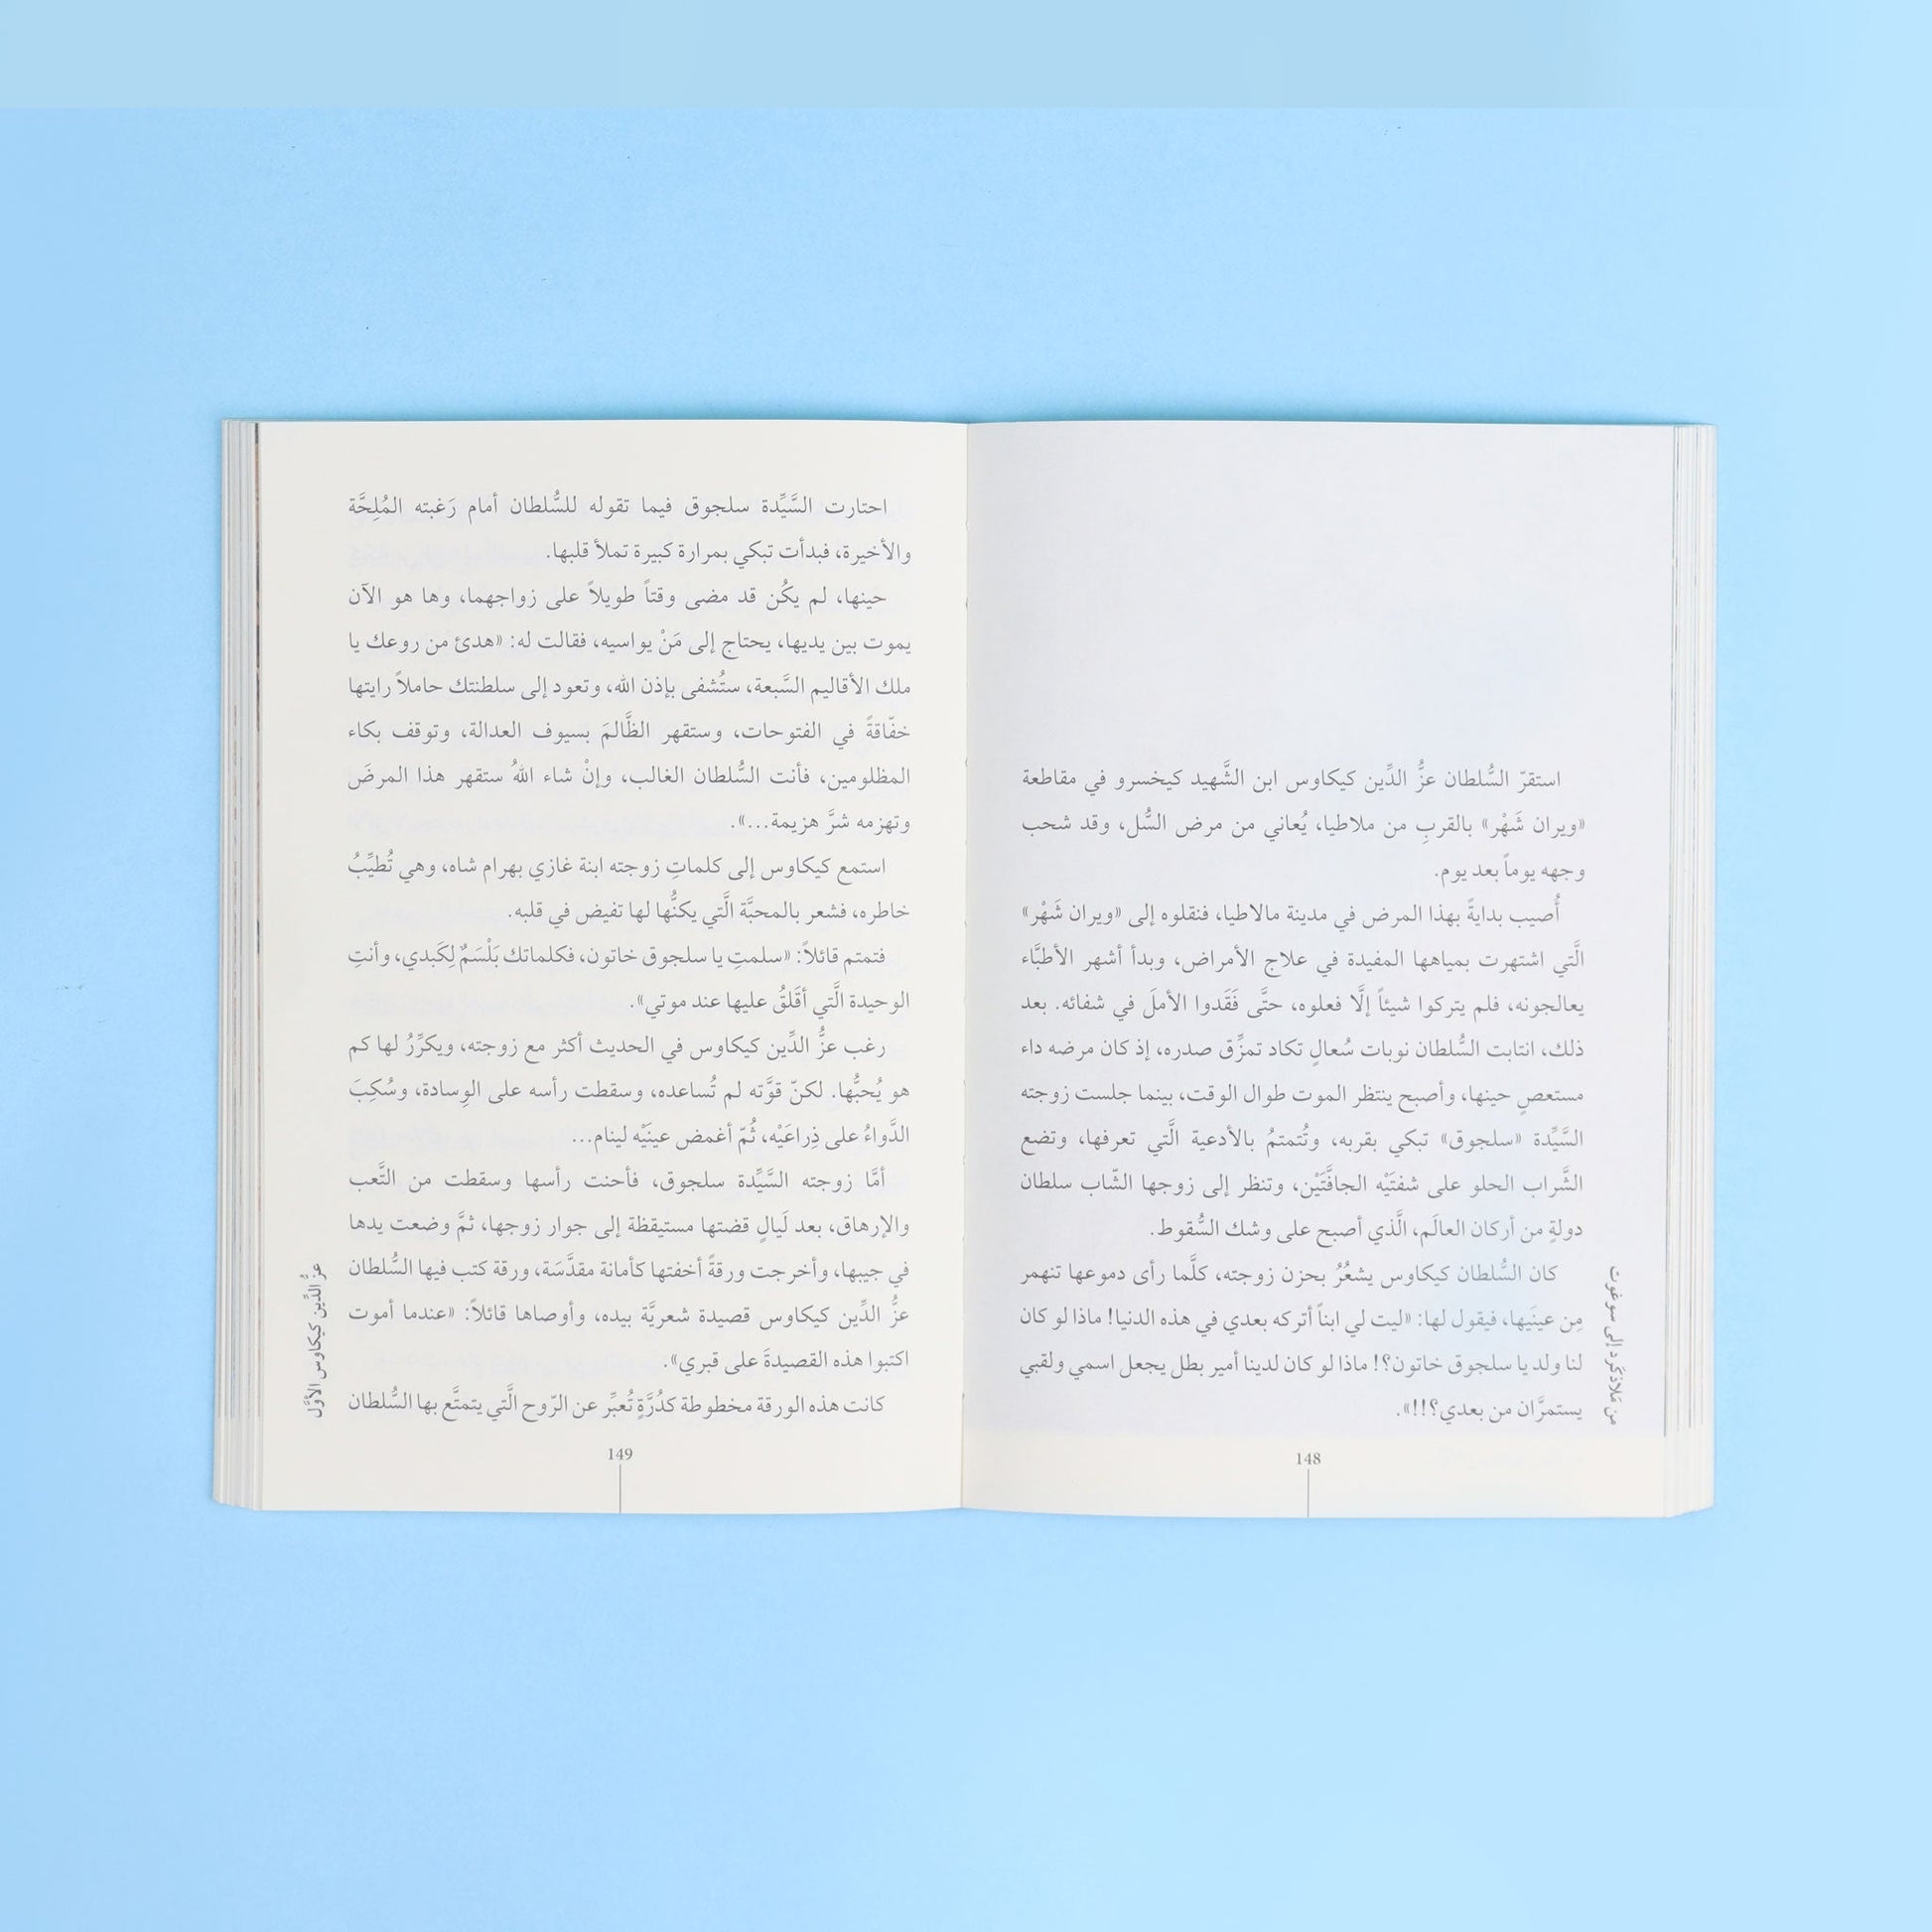 استقرّ السُّلطان عزُّ الدِّين كيكاوس ابن الشَّهيد كيخسرو في مقاطعة
«ويران شَهْر» بالقربِ من ملاطيا، يُعاني من مرض السُّل، وقد شحب
وجهه يوماً بعد يوم.
أُصيب بدايةً بهذا المرض في مدينة مالاطيا، فنقلوه إلى «ويران شَهْر»
الَّتي اشتهرت بمياهها المفيدة في علاج الأمراض، وبدأ أشهر الأطبَّاء
يعالجونه، فلم يتركوا شيئاً إلَّا فعلوه، حتَّى فَقَدوا الأملَ في شفائه. بعد
ذلك، انتابت السُّلطان نوبات سُعالٍ تكاد تمزِّق صدره، إذ كان مرضه داء
مستعصٍ حينها، وأصبح ينتظر الموت طوال الوقت، بينما جلست زوجته
السَّيِّدة «سلجوق» تبكي بقربه، وتُتمتمُ بالأدعية الَّتي تعرفها، وتضع
الشَّراب الحلو على شفتَيْه الجافَّتَيْن، وتنظر إلى زوجها الشّاب سلطان
دولةٍ من أركان العالَم، الَّذي أصبح على وشك السُّقوط.
كان السُّلطان كيكاوس يشعُرُ بحزن زوجته، كلَّما رأى دموعها تنهمر
مِن عينَيها، فيقول لها: «ليت لي ابناً أتركه بعدي في هذه الدنيا! ماذا لو كان
لنا ولد يا سلجوق خاتون؟! ماذا لو كان لدينا أمير بطل يجعل اسمي ولقبي
يستمرَّان من بعدي؟!!».
من مَلاذكَرد إلى سوغوت
148
احتارت السَّيِّدة سلجوق فيما تقوله للسُّلطان أمام رَغبته المُلِحَّة
والأخيرة، فبدأت تبكي بمرارة كبيرة تملأ قلبها.
حينها، لم يكُن قد مضى وقتاً طويلاً على زواجهما، وها هو الآن
يموت بين يديها، يحتاج إلى مَنْ يواسيه، فقالت له: «هدئ من روعك يا
ملك الأقاليم السَّبعة، ستُشفى بإذن الله، وتعود إلى سلطنتك حاملاً رايتها
خفّاقةً في الفتوحات، وستقهر الظَّالمَ بسيوف العدالة، وتوقف بكاء
المظلومين، فأنت السُّلطان الغالب، وإنْ شاء اللهُ ستقهر هذا المرضَ
وتهزمه شرَّ هزيمة...».
استمع كيكاوس إلى كلماتِ زوجته ابنة غازي بهرام شاه، وهي تُطيِّبُ
خاطره، فشعر بالمحبَّة الَّتي يكنُّها لها تفيض في قلبه.
فتمتم قائلاً: «سلمتِ يا سلجوق خاتون، فكلماتك بَلْسَمٌ لِكَبدي، وأنتِ
الوحيدة الَّتي أقَلقُ عليها عند موتي».
رغب عزُّ الدِّين كيكاوس في الحديث أكثر مع زوجته، ويكرِّرُ لها كم
هو يُحبُّها. لكنّ قوَّته لم تُساعده، وسقطت رأسه على الوِسادة، وسُكِبَ
الدَّواءُ على ذِراعَيْه، ثُمّ أغمض عينَيْه لينام...
أمَّا زوجته السَّيِّدة سلجوق، فأحنت رأسها وسقطت من التَّعب
والإرهاق، بعد لَيالٍ قضتها مستيقظة إلى جوار زوجها، ثمَّ وضعت يدها
في جيبها، وأخرجت ورقةً أخفتها كأمانة مقدَّسَة، ورقة كتب فيها السُّلطان
عزُّ الدِّين كيكاوس قصيدة شعريَّة بيده، وأوصاها قائلاً: «عندما أموت
اكتبوا هذه القصيدةَ على قبري».
كانت هذه الورقة مخطوطة كدُرَّةٍ تُعبِّر عن الرّوح الَّتي يتمتَّع بها السُّلطان
عزُّ الدِّين كيكاوس الأوَّل
149